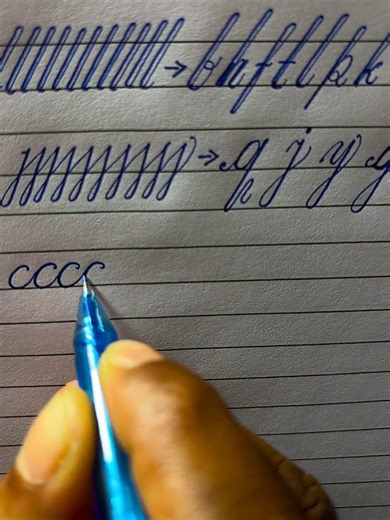 → b h f t l p k
→ q j y g
cccc